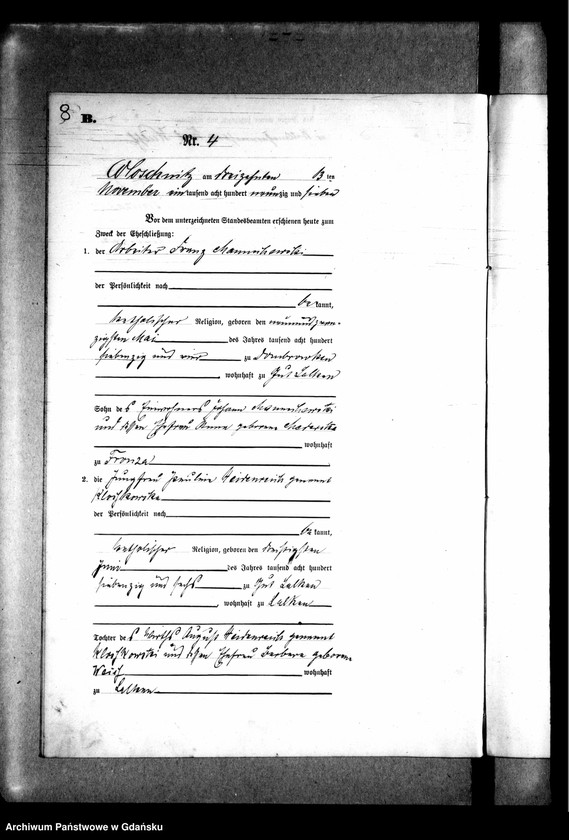 8 B.
Nr. 4
am dreizehnten 13 ten
November ein tausend acht hundert neunzig und sieben
Vor dem unterzeichneten Standesbeamten erschienen heute zum
Zweck der Eheschließung:
1. der Arbeiter Franz
der Persönlichkeit nach
be kannt,
katholischer Religion, geboren den neunundzwan-
zigsten Mai des Jahres tausend acht hundert
siebenzig und vier zu Dombrowken
, wohnhaft zu Gut Lalkau
Sohn des Einwohners Johann
und dessen Ehefrau Anna geborene
wohnhaft
zu Fronza
2. die Jungfrau Pauline Heidenreich genannt
der Persönlichkeit nach
be kannt,
katholischer Religion, geboren den dreißigsten
Juni des Jahres tausend acht hundert
siebenzig und sechs zu Gut Lalkau
, wohnhaft zu Lalkau
Tochter des Wirths August Heidenreich genannt
und dessen Ehefrau Barbara geborene
wohnhaft
zu Lalkau
Archiwum Państwowe w Gdańsku